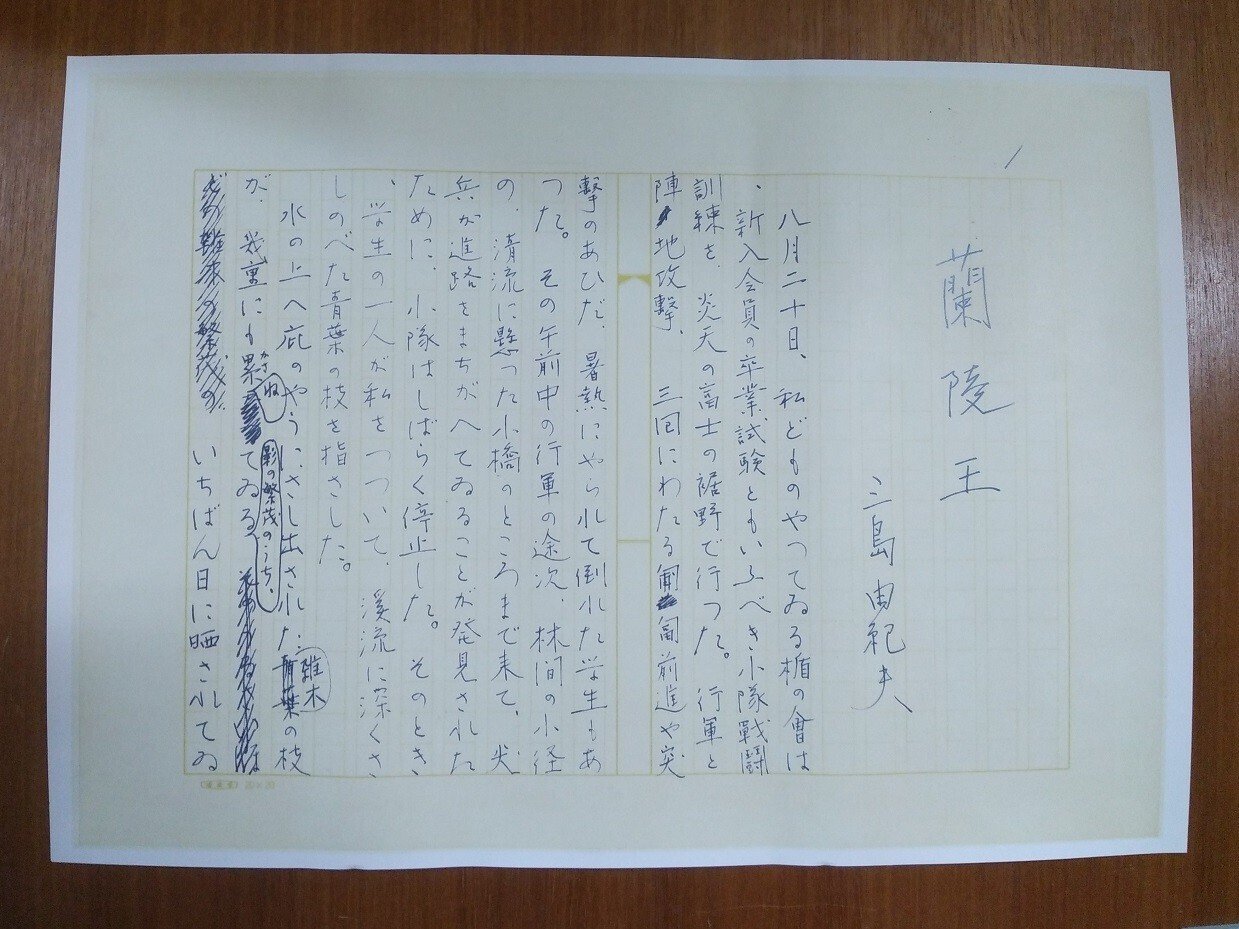 蘭陵王
三島由紀夫
八月二十日、私どものやつてゐる楯の會は
、新入会員の卒業試験ともいふべき小隊戰闘
訓練を、炎天の富士の裾野で行つた。行軍と
陣地攻撃、三回にわたる匍匐前進や突
撃のあひだ、暑熱にやられて倒れた学生もあ
つた。その午前中の行軍の途次、林間の小径
の、清流に懸つた小橋のところまで来て、尖
兵が進路をまちがへてゐることが発見された
ために、小隊はしばらく停止した。そのとき
、学生の一人が私をつついて、溪流に深くさ
しのべた青葉の枝を指さした。
水の上へ庇のやうにさし出された雑木の枝
が、幾重にも累ねてゐる影の繁茂のうち、
いちばん日に晒されてゐ
20×20